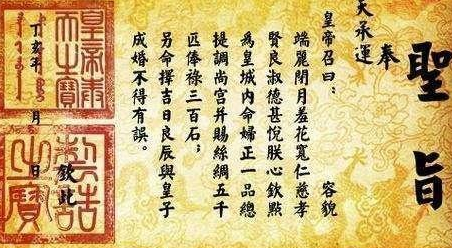 聖旨
奉
天承運
皇帝召曰：　容貌
端麗閉月羞花寬仁慈孝
賢良淑德甚悅朕心欽點
為皇城內命婦正一品總
提調尚宮并賜絲綢五千
匹俸祿三百石；
另命擇吉日良辰與皇子
成婚不得有誤。
欽此
丁亥年　月　日